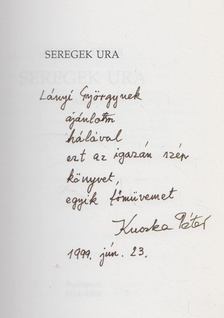 SEREGEK URA
Lányi Györgynek
ajánlom
hálával
ezt az igazán szép
könyvet,
egyik főművemet
Kuczka Péter
1999. jún. 23.